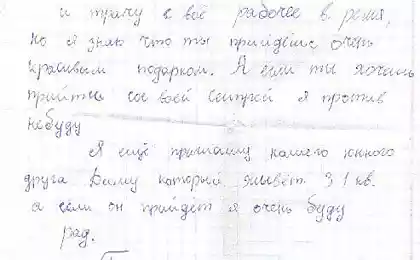 и трачу с всё рабочее в. реми,
но я знаю что ты прийдёшь очень
красивым подарком. А если ты хочешь
прийти со своей сестрой я против
небуду
Я ещё приглашу нашего юнного
друга Диму который живёт 31 кв.
а если он прийдёт я очень буду
рад.